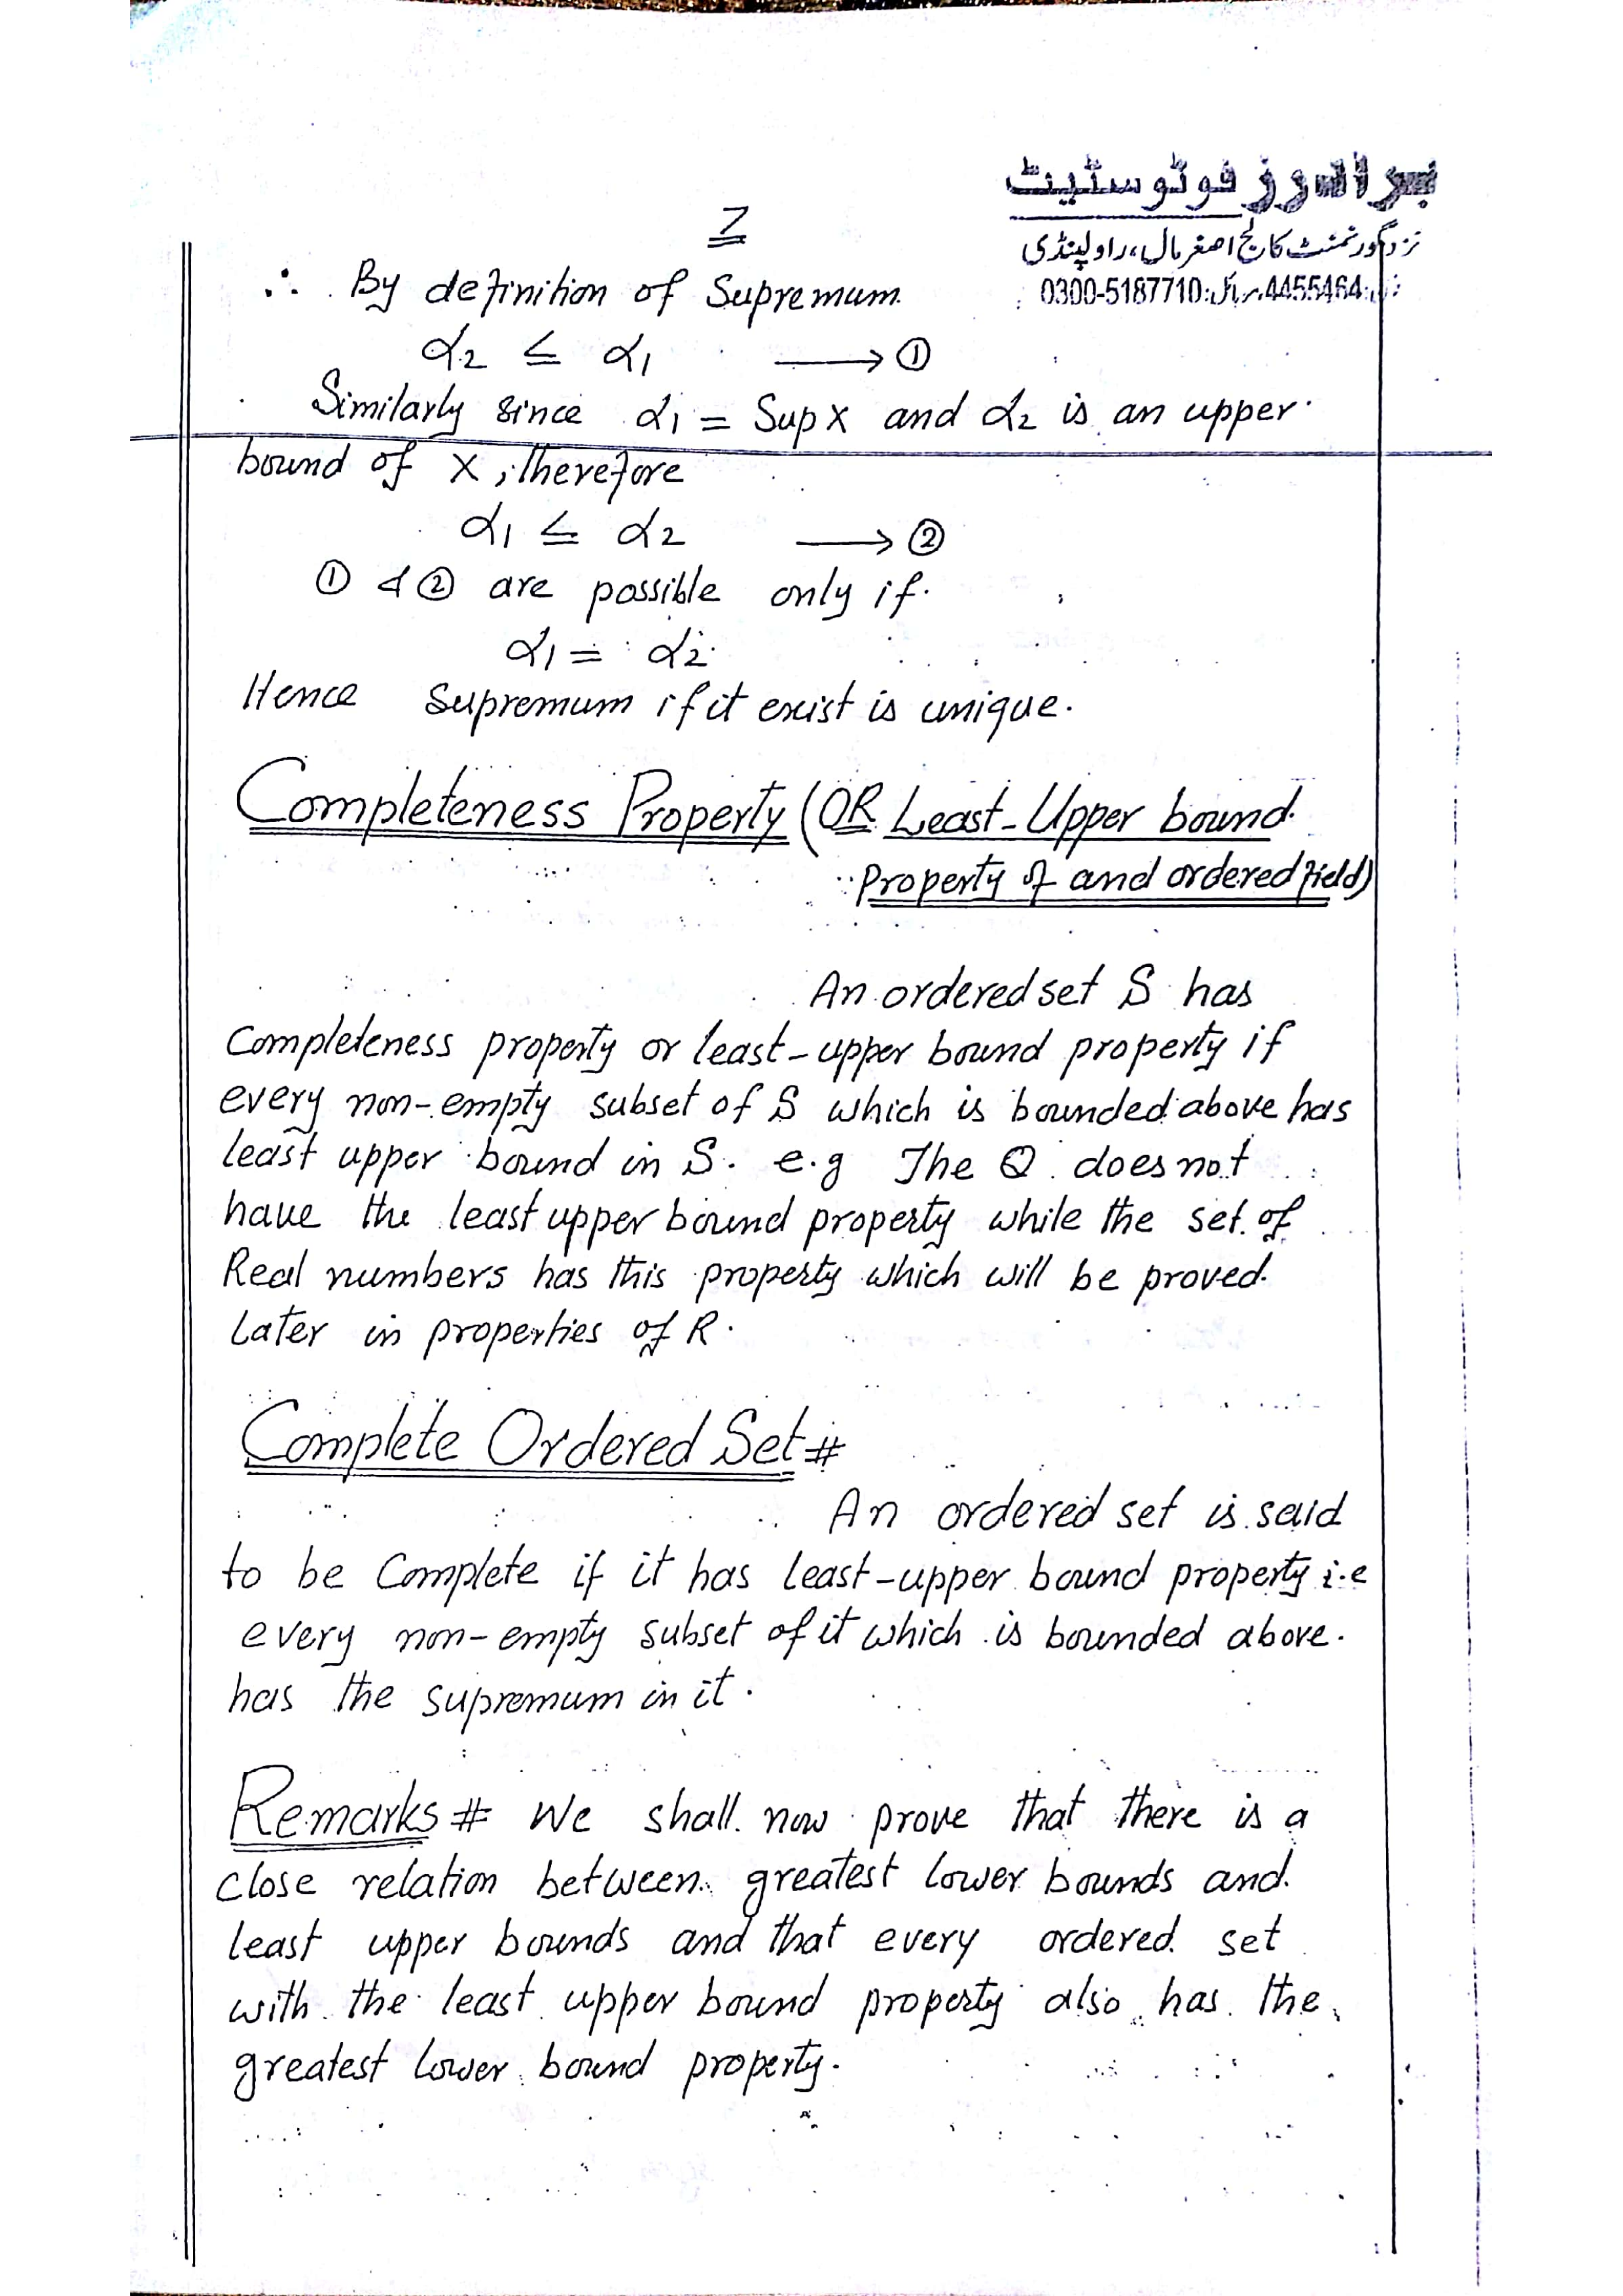 برادرز فوٹو سٹیٹ
نزد گورنمنٹ کالج اصغر مال، راولپنڈی
4455464، موبائل: 0300-5187710
7
∴ By definition of Supremum
α₂ ≤ α₁ ⟶ ①
Similarly since α₁ = Sup X and α₂ is an upper
bound of X, therefore
α₁ ≤ α₂ ⟶ ②
① & ② are possible only if
α₁ = α₂
Hence Supremum if it exist is unique.
Completeness Property (OR Least-Upper bound
Property of and ordered field)
An ordered set S has
Completeness property or least-upper bound property if
every non-empty subset of S which is bounded above has
least upper bound in S. e.g The Q does not
have the least upper bound property while the set of
Real numbers has this property which will be proved
Later in properties of R.
Complete Ordered Set #
An ordered set is said
to be Complete if it has least-upper bound property i.e
every non-empty subset of it which is bounded above
has the supremum in it.
Remarks # We shall now prove that there is a
close relation between greatest lower bounds and
least upper bounds and that every ordered set
with the least upper bound property also has the
greatest lower bound property.